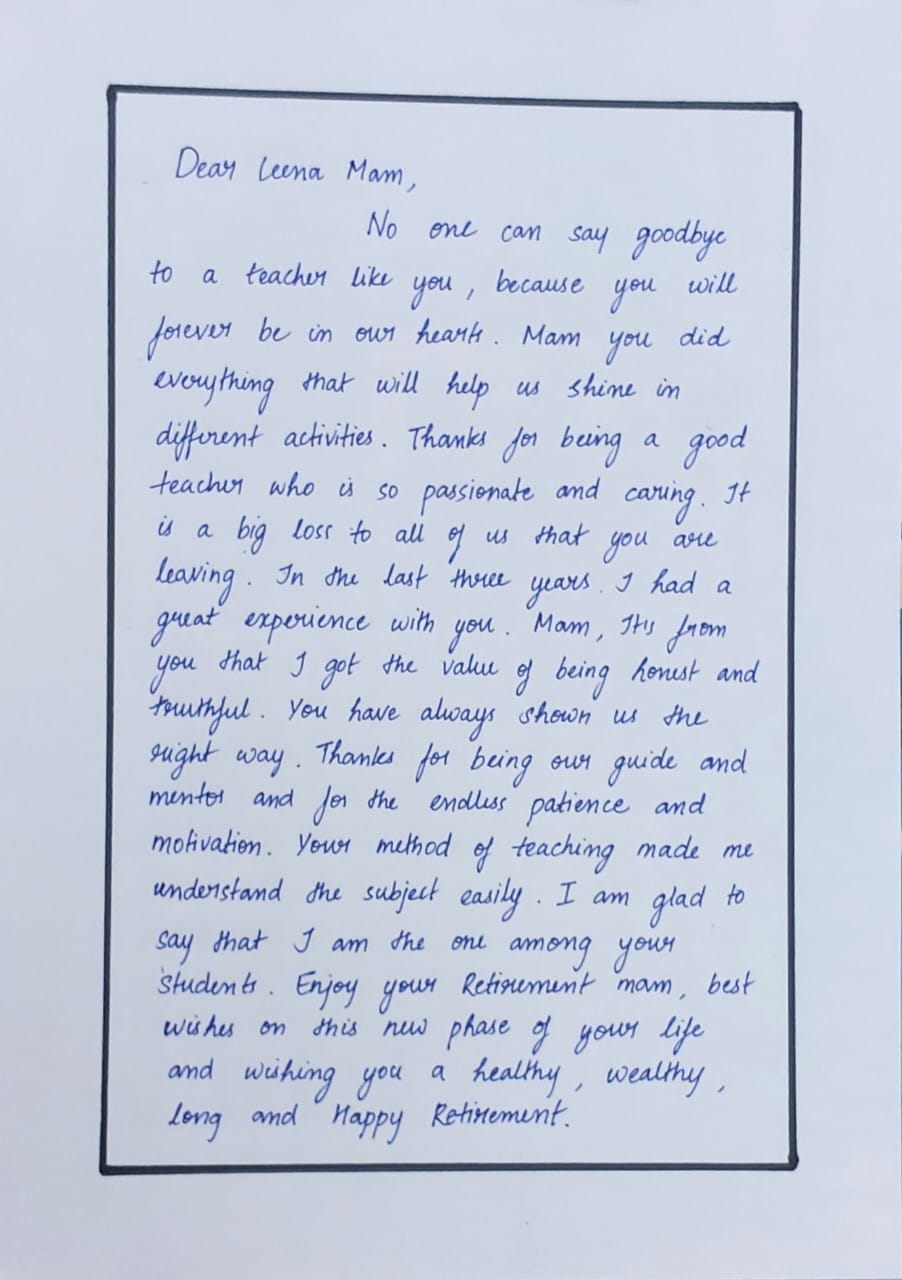 Dear Leena Mam,
No one can say goodbye
to a teacher like you, because you will
forever be in our hearts. Mam you did
everything that will help us shine in
different activities. Thanks for being a good
teacher who is so passionate and caring. It
is a big loss to all of us that you are
leaving. In the last three years. I had a
great experience with you. Mam, It's from
you that I got the value of being honest and
truthful. You have always shown us the
right way. Thanks for being our guide and
mentor and for the endless patience and
motivation. Your method of teaching made me
understand the subject easily. I am glad to
say that I am the one among your
students. Enjoy your Retirement mam, best
wishes on this new phase of your life
and wishing you a healthy, wealthy,
long and Happy Retirement.